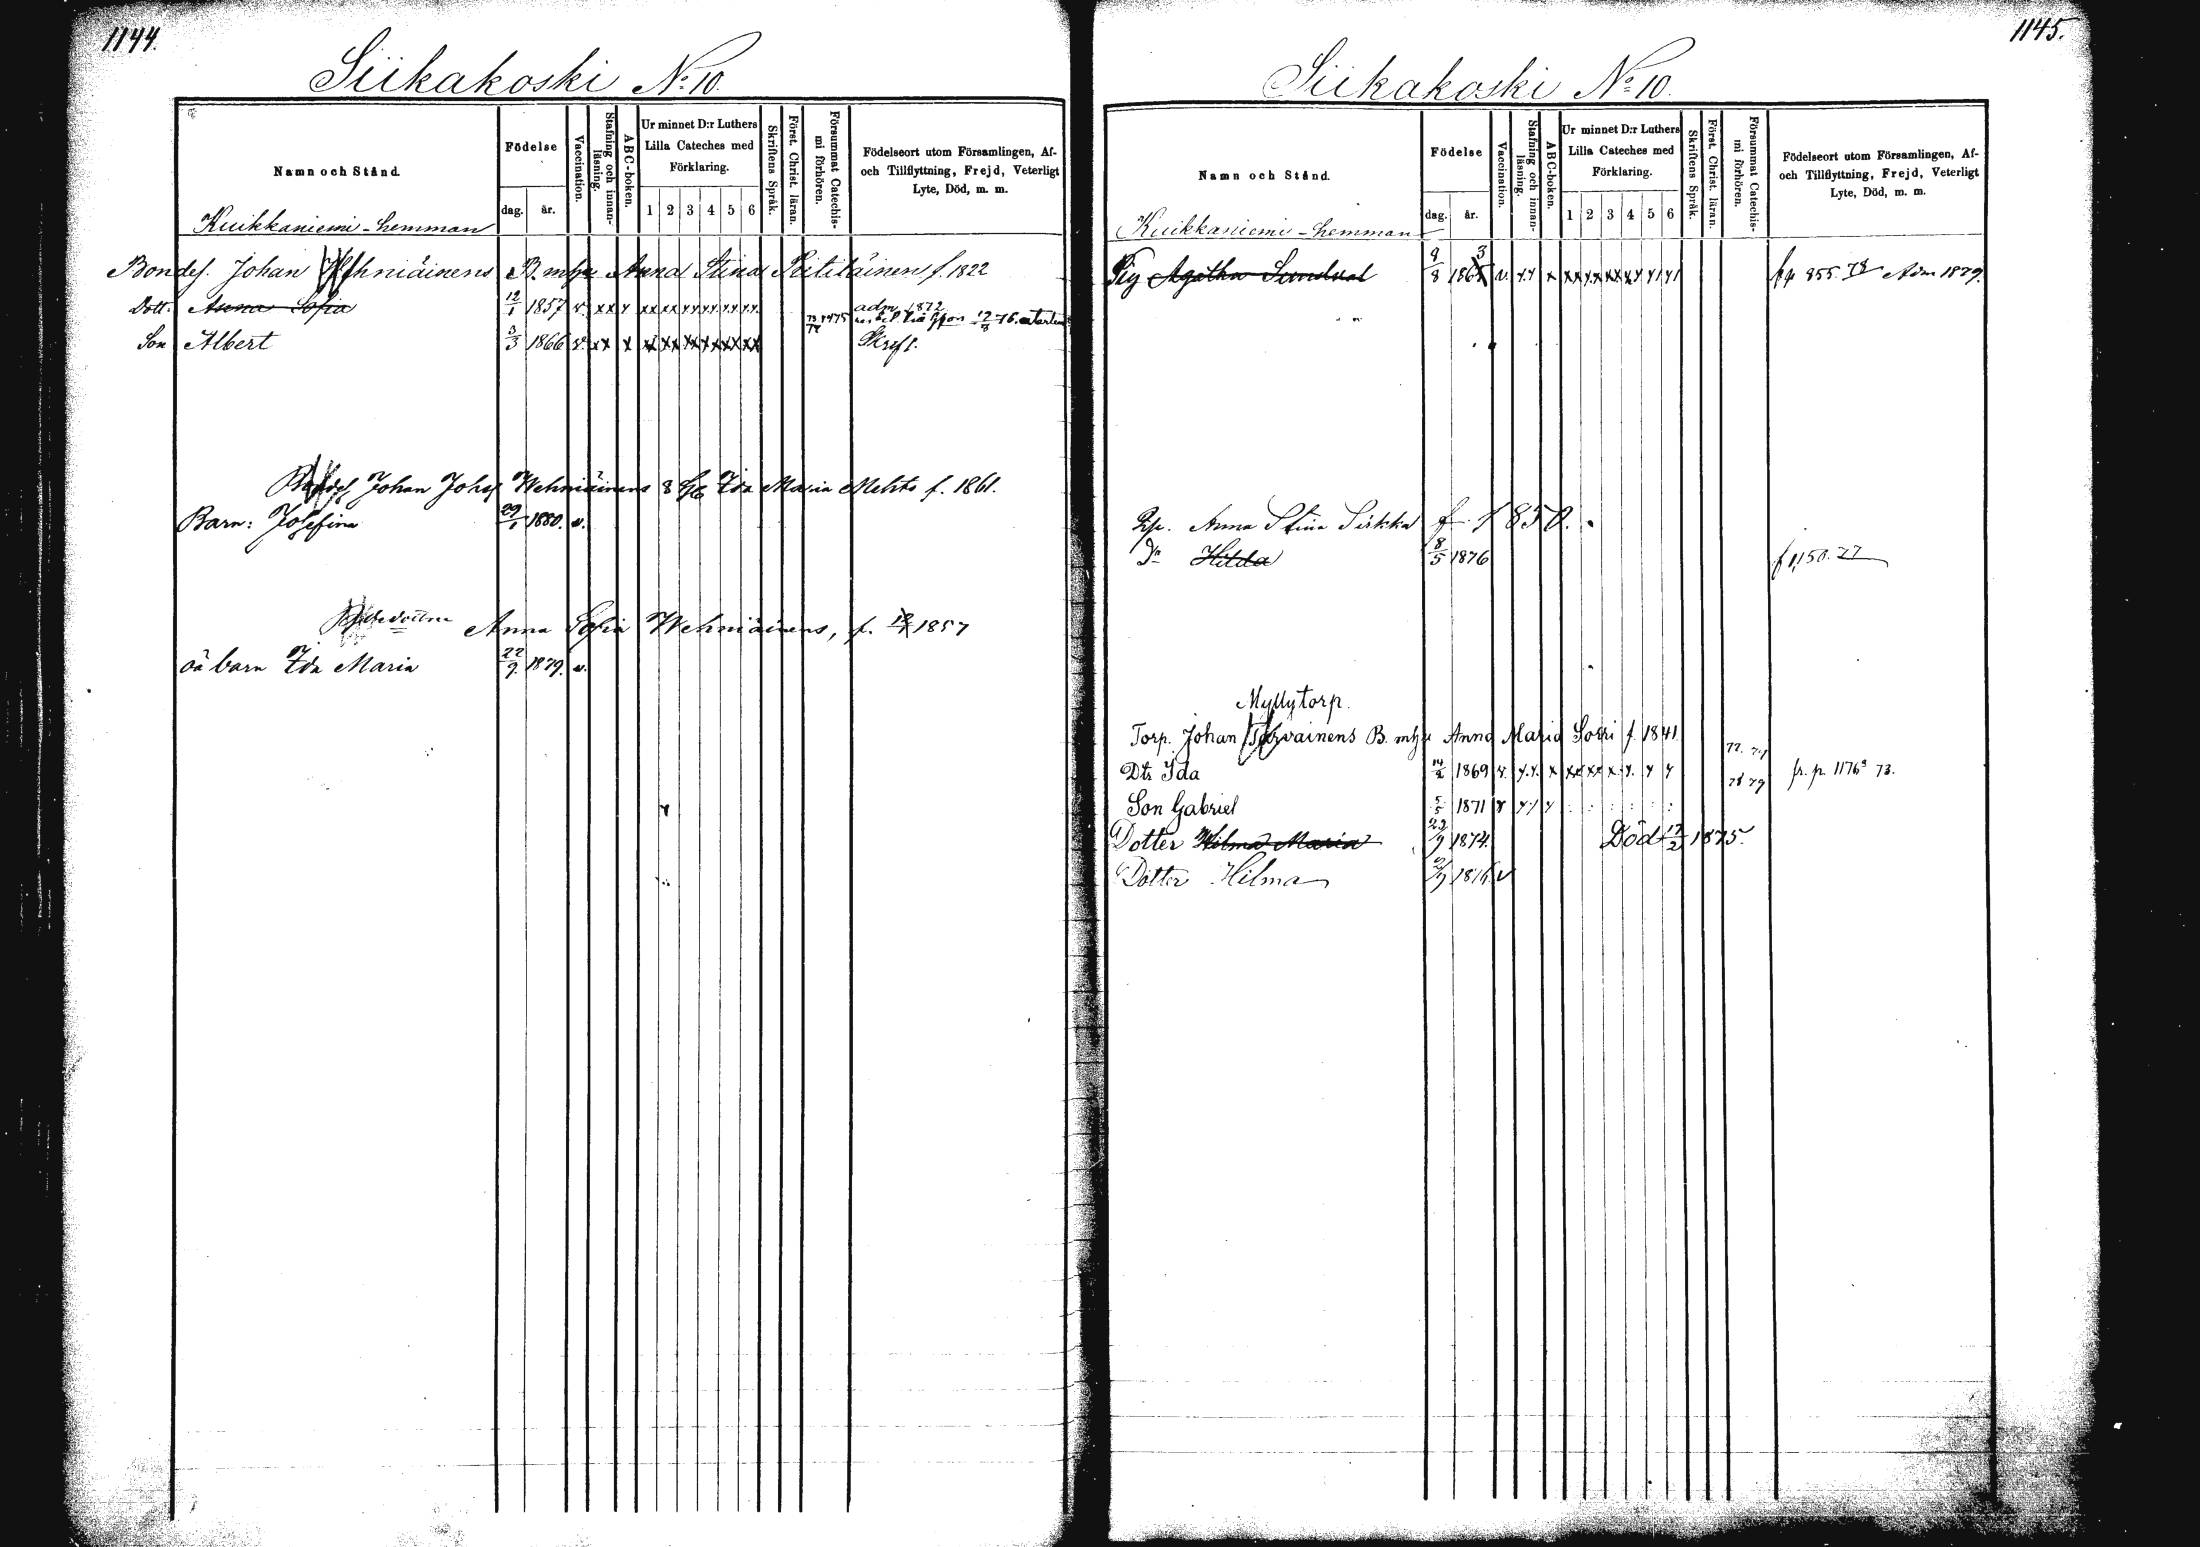 1144.
Siikakoski No 10.
Namn och Stånd.
Födelse
dag.
år.
Vaccination.
Stafning och innan-
läsning.
ABC-boken.
Ur minnet D:r Luthers
Lilla Cateches med
Förklaring.
1 2 3 4 5 6
Skriftens Språk.
Först. Christ. läran.
Försummat Catechis-
mi förhören.
Födelseort utom Församlingen, Af-
och Tillflyttning, Frejd, Veterligt
Lyte, Död, m. m.
Kuikkaniemi-hemman
Bondes. Johan Wehniäinens B. mhu Anna Stina f. 1822
Dott. Anna Sofia 12/1 1857 v. xx x xx xx xx adm. 1872
Son Albert 3/3 1866 v. xx x xx xx xx xx xx xx Skrift.
Johan Johsf Wehniäinens & Ida Maria f. 1861.
Barn: Josefina 29/1 1880. v.
Anna Sofia Wehniäinens, f. 12/1 1857
oä barn Ida Maria 22/9. 1879. v.
1145.
Siikakoski No 10.
Namn och Stånd.
Födelse
dag.
år.
Vaccination.
Stafning och innan-
läsning.
ABC-boken.
Ur minnet D:r Luthers
Lilla Cateches med
Förklaring.
1 2 3 4 5 6
Skriftens Språk.
Först. Christ. läran.
Försummat Catechis-
mi förhören.
Födelseort utom Församlingen, Af-
och Tillflyttning, Frejd, Veterligt
Lyte, Död, m. m.
Kuikkaniemi-hemman
Pig Agatha Sundval 8/8 1863 v. fr p 855. 78 Adm 1879.
Anna Stina Sirkka f. 1850.
Dr Hilda 8/5 1876 f 1,150. 77
Myllytorp.
Torp. Johan Tarvainens B. mhu Anna Maria Sorri f. 1841.
Dtr Ida 1869 v. x.x. x fr. p. 1176 73.
78 79
Son Gabriel 5/5 1871
Dotter Wilma Maria 22/9 1874. Död 17/2 1875.
Dotter Hilma v